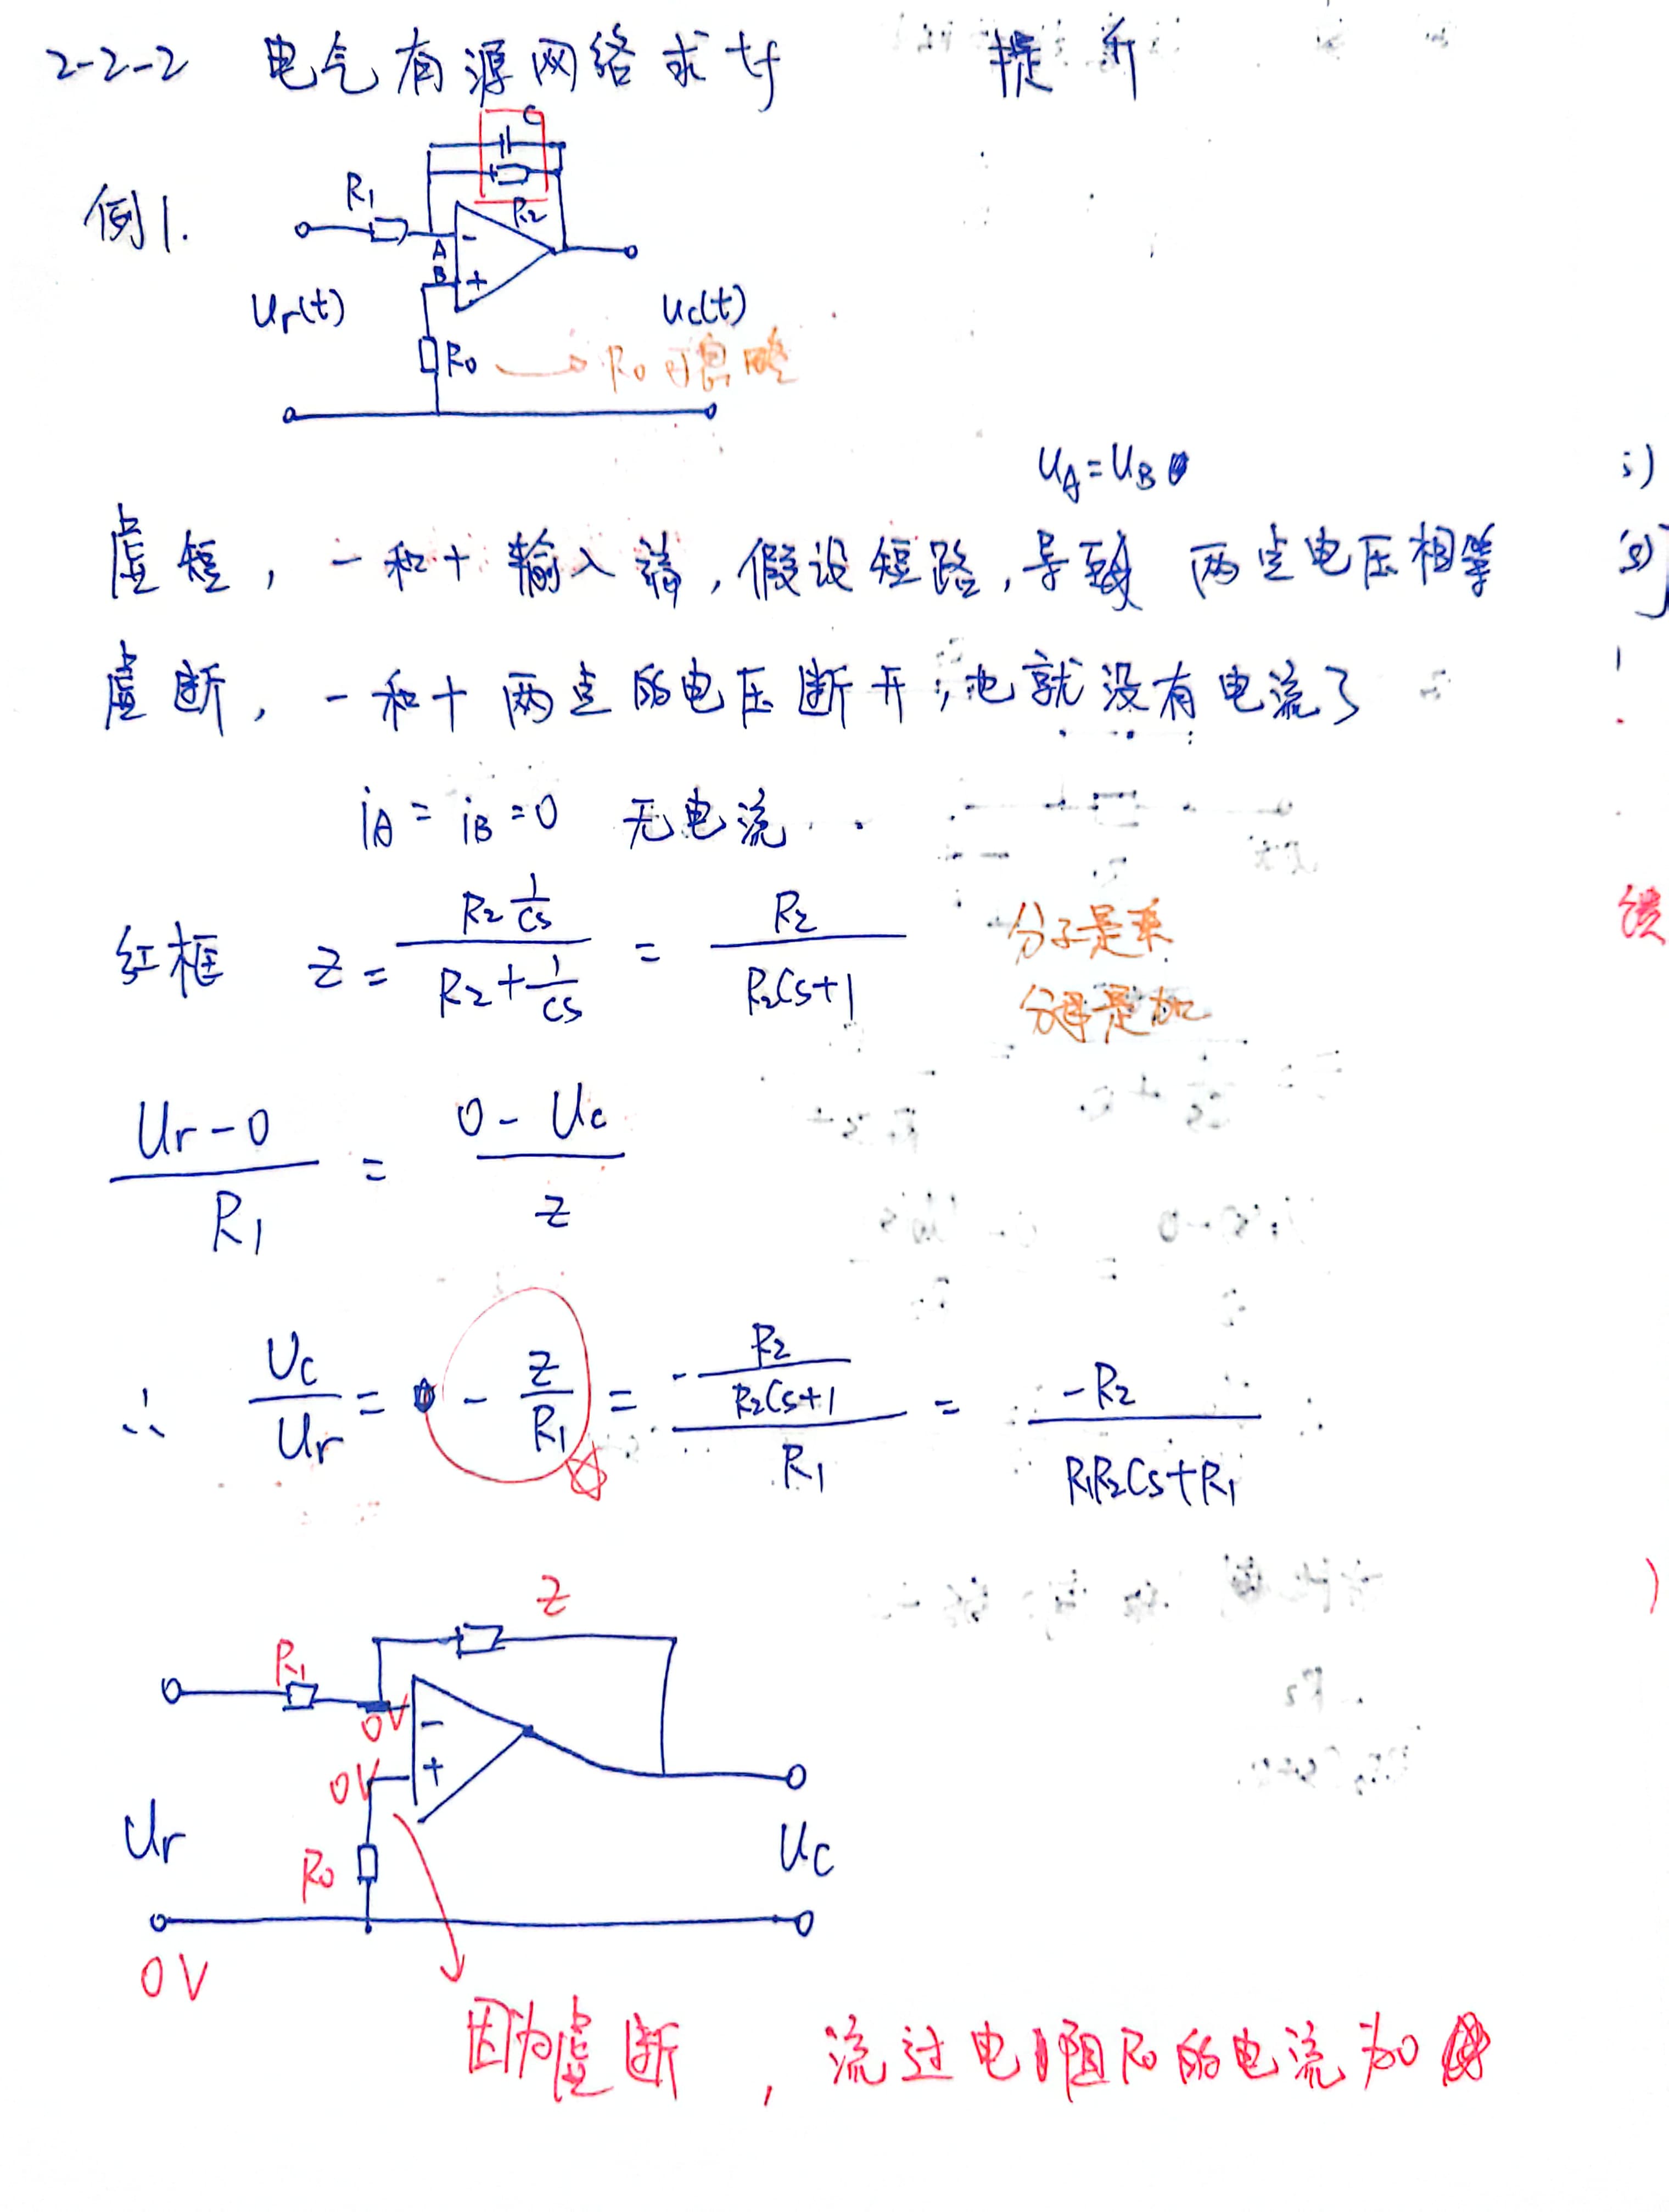 2-2-2 电气有源网络求tf 提升
C
例1. R1 R2
A -
B +
Ur(t) Uc(t)
R0 → R0可忽略
UA=UB
虚短，-和+输入端，假设短路，导致 两点电压相等
虚断，-和+两点的电压断开，也就没有电流了
iA = iB = 0 无电流
红框 Z = (R2 1/Cs) / (R2 + 1/Cs) = R2 / (R2Cs+1) 分子是乘
分母是加
(Ur-0) / R1 = (0-Uc) / Z
∴ Uc/Ur = - Z/R1 = - (R2/(R2Cs+1)) / R1 = -R2 / (R1R2Cs+R1)
Z
R1
0V -
0V +
Ur R0 Uc
0V
因为虚断，流过电阻R0的电流为0